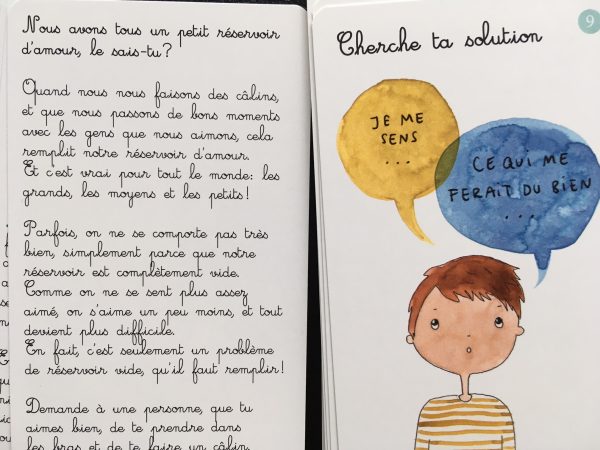 Nous avons tous un petit réservoir
d'amour, le sais-tu?
Quand nous nous faisons des câlins,
et que nous passons de bons moments
avec les gens que nous aimons, cela
remplit notre réservoir d'amour.
Et c'est vrai pour tout le monde: les
grands, les moyens et les petits!
Parfois, on ne se comporte pas très
bien, simplement parce que notre
réservoir est complètement vide.
Comme on ne se sent plus assez
aimé, on s'aime un peu moins, et tout
devient plus difficile.
En fait, c'est seulement un problème
de réservoir vide, qu'il faut remplir!
Demande à une personne, que tu
aimes bien, de te prendre dans
les bras et de te faire un câlin.
9
Cherche ta solution
JE ME
SENS
...
CE QUI ME
FERAIT DU BIEN
...